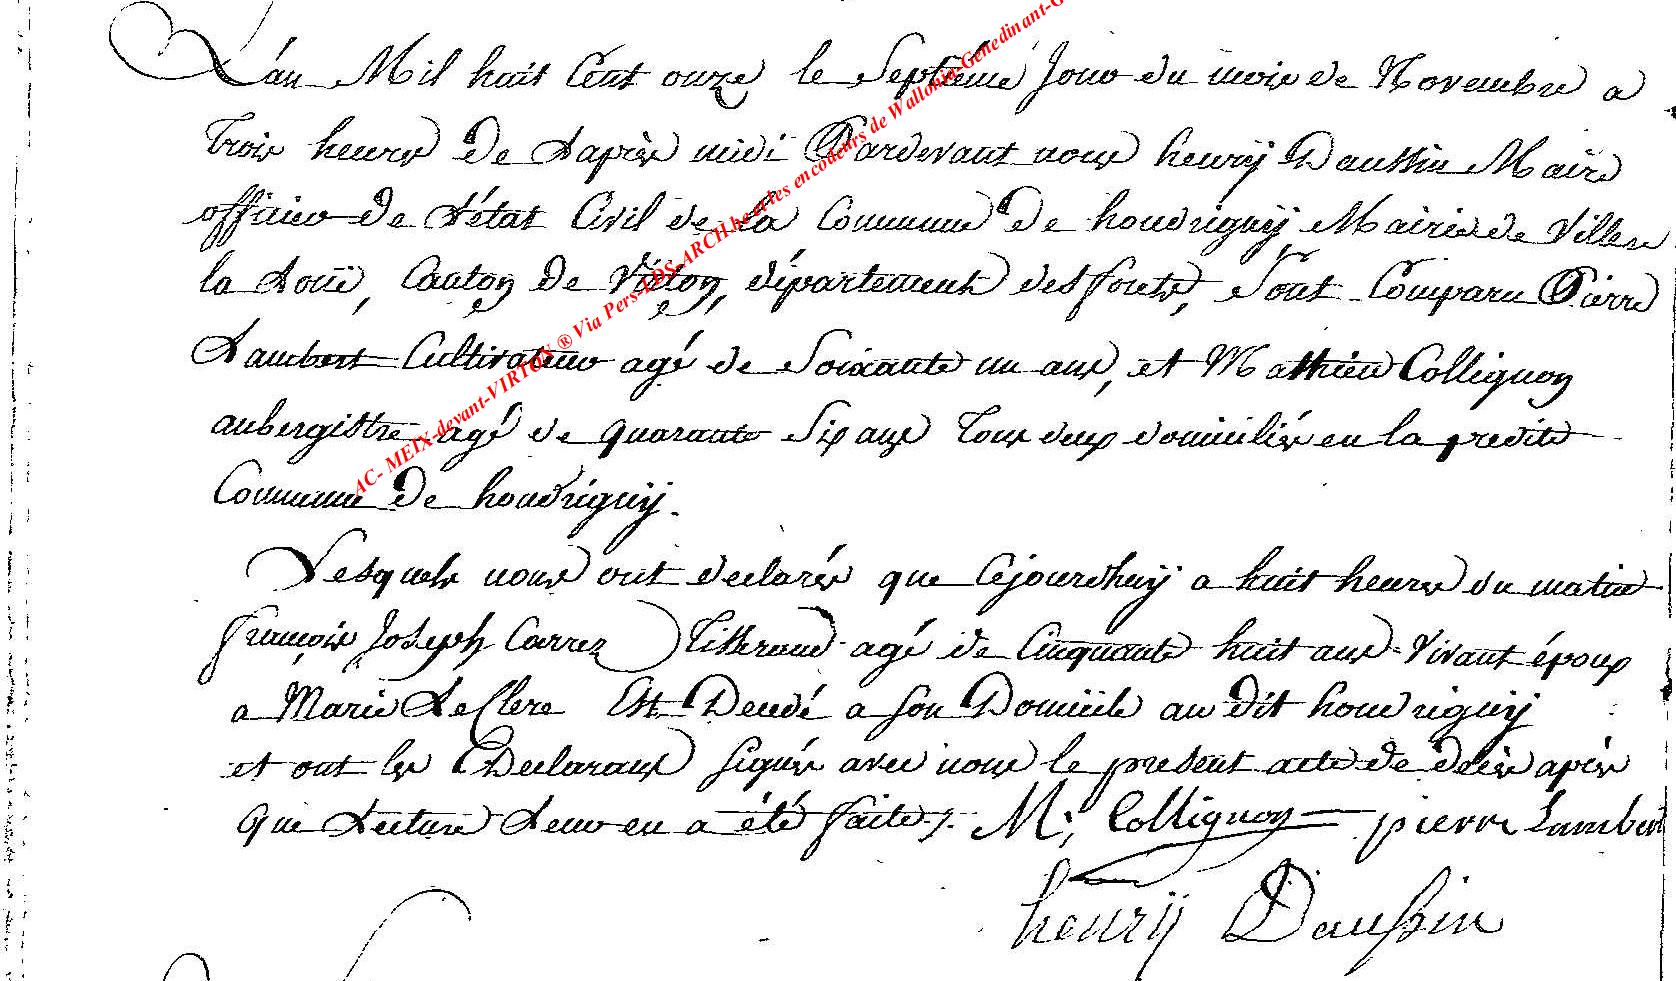 L'an Mil huit Cent onze le Septieme Jour du mois de Novembre a
trois heures de L'après midi Pardevant nous henrÿ Daussin Maire
officier de L'état Civil de la Commune de houdrignÿ Mairie de Villers
la Loüe, Canton de Virton, département des forets, Sont Comparu Pierre
Lambert Cultivateur agé de Soixante un ans, et Mathieu Collignon
aubergistre agé de quarante Six ans tous deux domiciliés en la predite
Commune de houdrignÿ.
Lesquels nous ont declarés que Cejourdhuÿ a huit heures du matin
françois Joseph Carrez Tisserand agé de Cinquante huit ans Vivant époux
a Marie LeClere Est Decedé a son Domicile au dit houdrignÿ
et ont les Declarans signés avec nous le present acte de décès après
que Lecture Leur en a été faite ,/. M; Collignon pierre Lambert
henrÿ Daussin
AC- MEIX-devant-VIRTON ® Via Pers-LDS-ARCH.be et les encodeurs de Wallonia-Genedinant-G